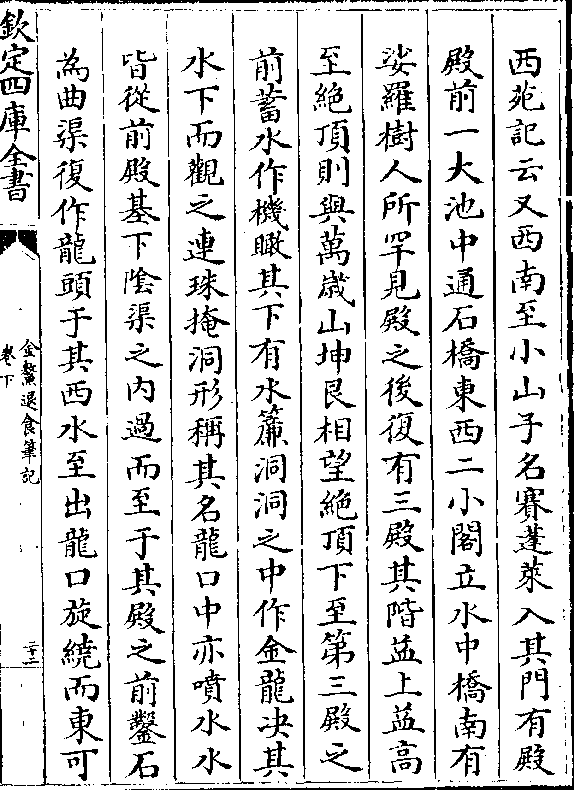 西苑記云又西南至小山子名賽蓬萊入其門有殿
殿前一大池中通石橋東西二小閣立水中橋南有
娑羅樹人所罕見殿之後復有三殿其階益上益高
至絶頂則與萬歲山坤艮相望絶頂下至第三殿之
前蓄水作機瞰其下有水簾洞洞之中作金龍决其
水下而觀之連珠掩洞形稱其名龍口中亦噴水水
皆從前殿基下陰渠之内過而至于其殿之前鑿石
為曲渠復作龍頭于其西水至出龍口旋繞而東可
欽定四庫全書
金鰲退食筆記
卷下
二十二